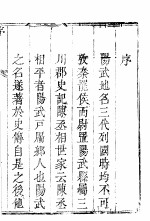 序
陽武地名三代列國時均不可
攷秦龍侯而尉置陽武縣屬三
川郡史記陳丞相世家云陳丞
相平者陽武戶牖鄉人也陽武
之名遂著於史傳自是之後循